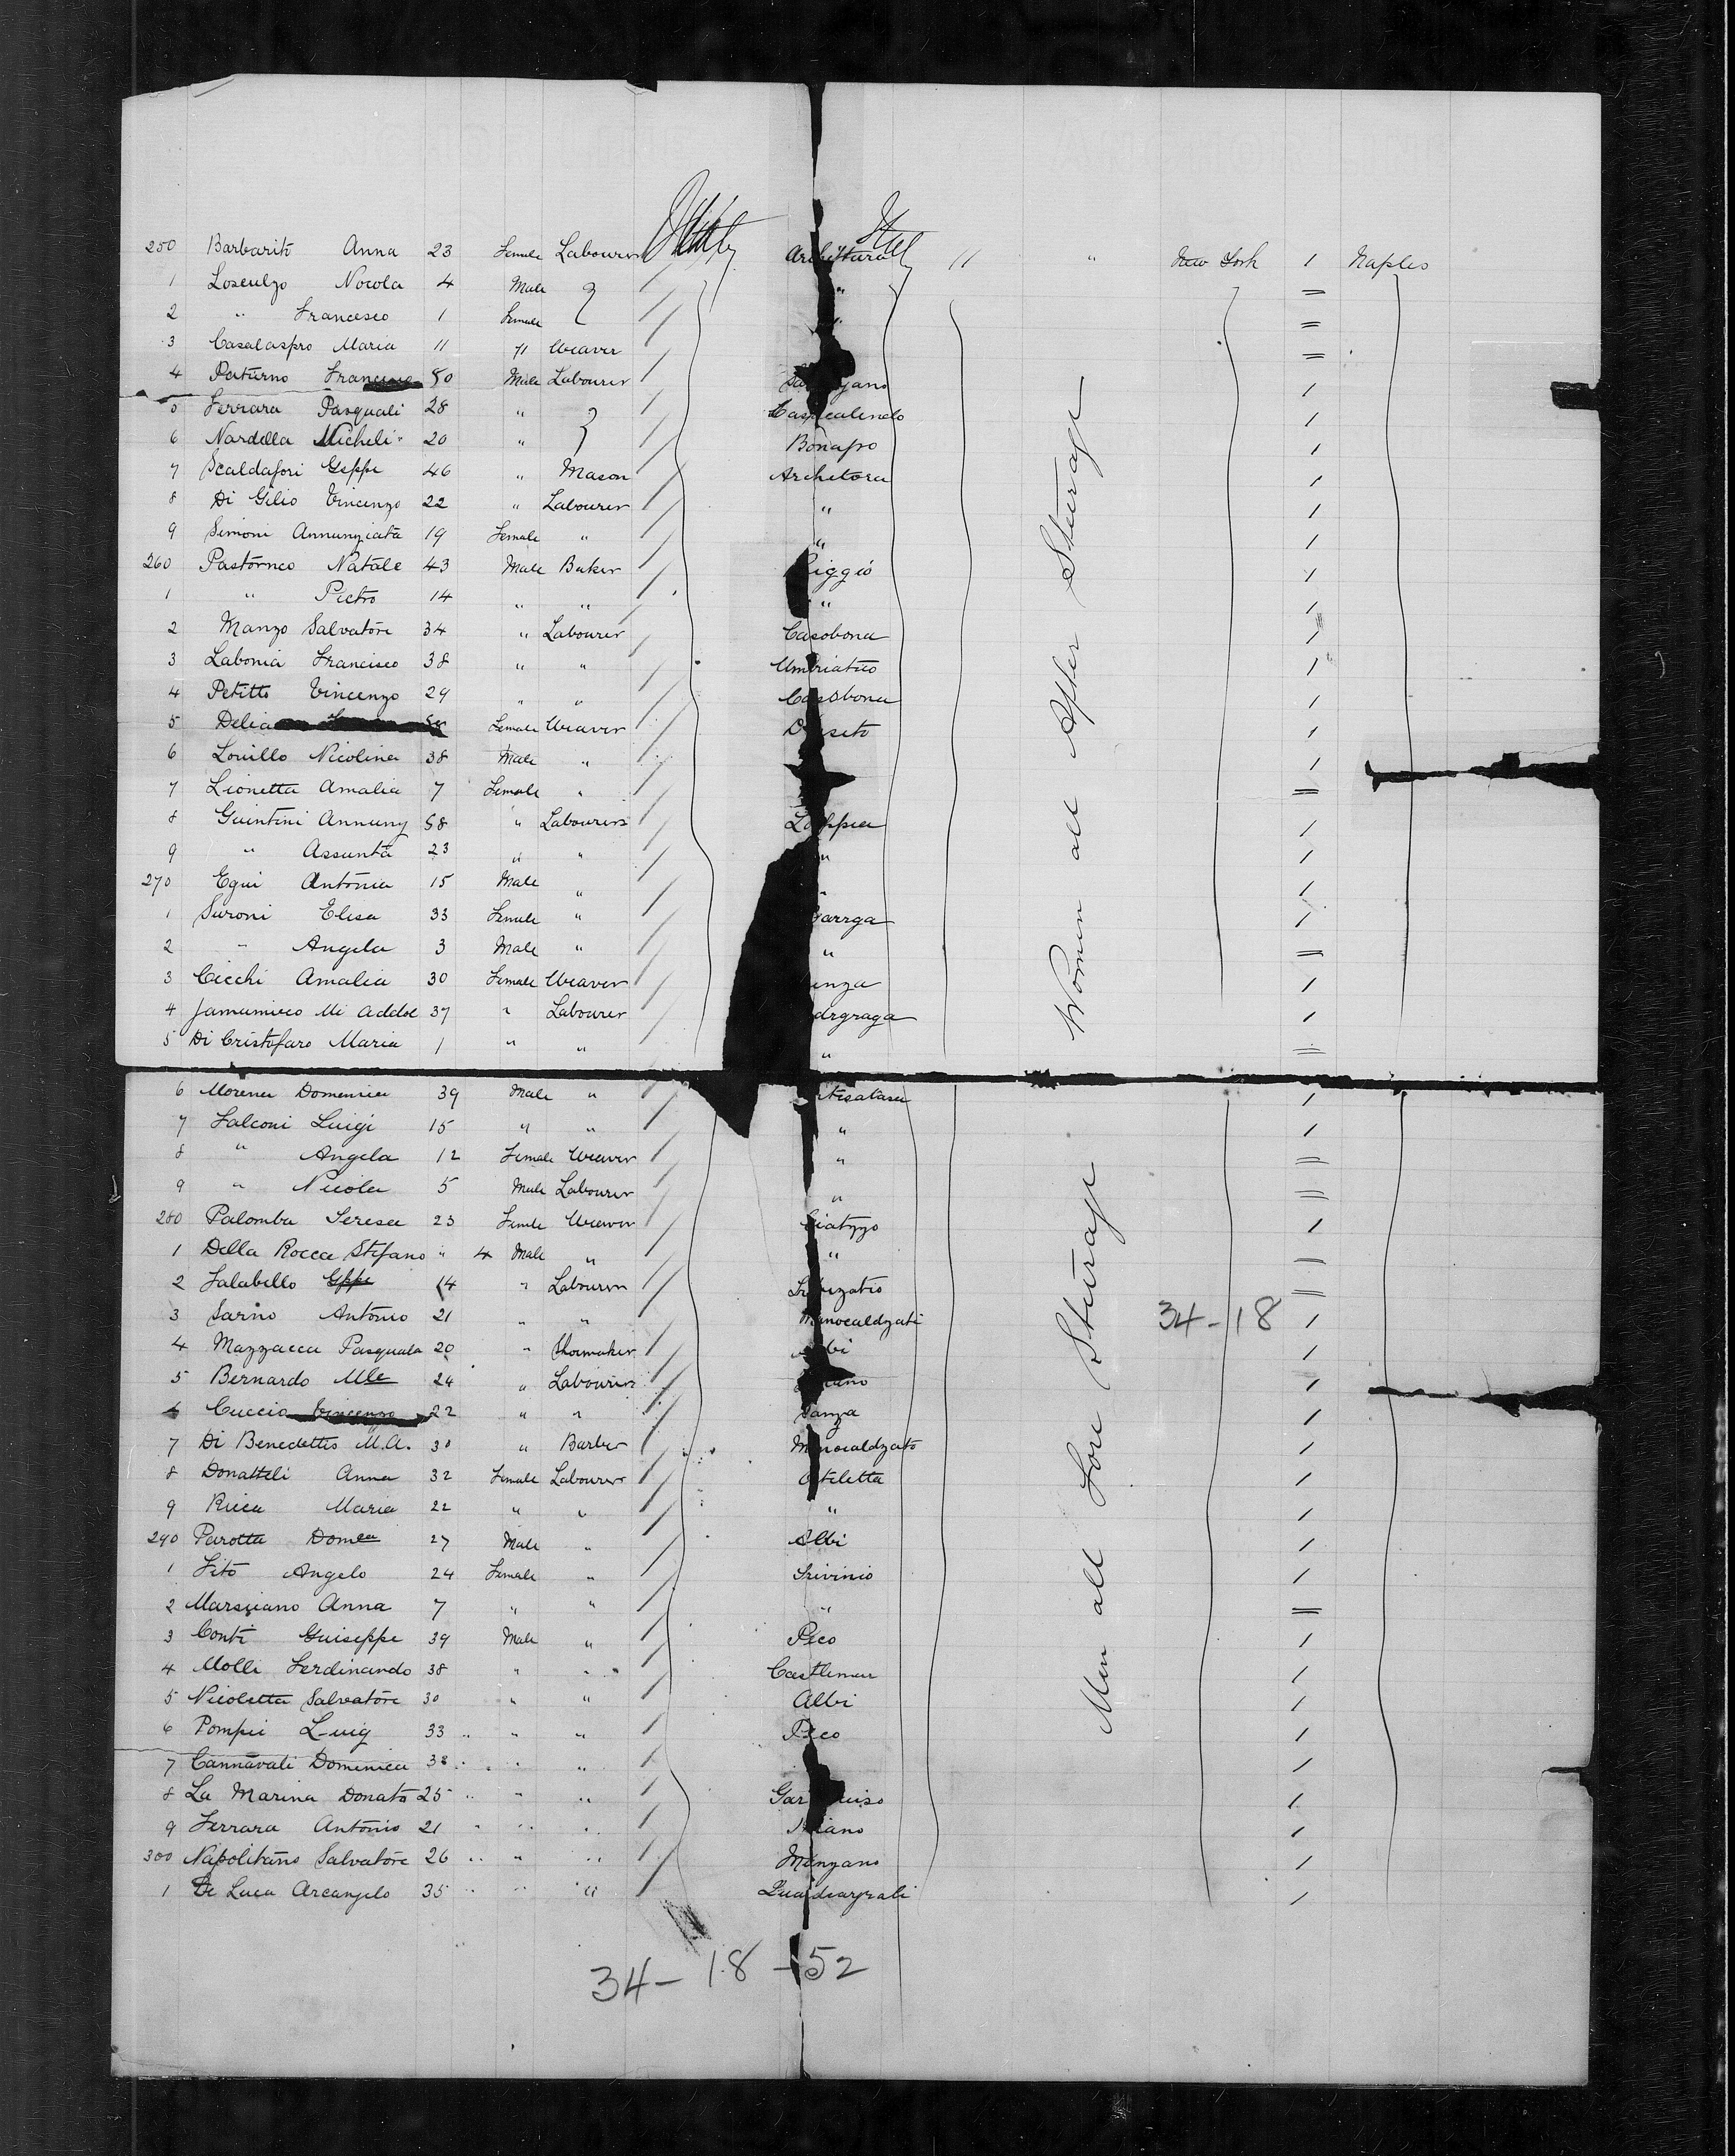 250 Barbarito Anna 23 Female Labourer Italy Italy " " New York 1 Naples
1 Losculzo Nicola 4 Male " =
2 " Francesco 1 Female " =
3 Casalaspro Maria 11 " Weaver =
4 Paturno 50 Male Labourer 1
5 Ferrara Pasquali 28 " 1
6 Nardella Micheli 20 " Bonafro 1
7 Scaldafori Geppe 46 " Mason Archetora 1
8 Di Gilio Vincenzo 22 " Labourer " 1
9 Simoni Annunziata 19 Female " " 1
260 Pastorneo Natale 43 Male Baker Riggio 1
1 " Pietro 14 " " " 1
2 Manzo Salvatore 34 " Labourer Casobona 1
3 Labonia Francisco 38 " " Umbriatico 1
4 Petitto Vincenzo 29 " " Casobona 1
5 Delia Female Weaver 1
6 Louillo Nicolina 38 Male " 1
7 Lionetta Amalia 7 Female " =
8 Guintini Annunz 58 " Labourers 1
9 " Assunta 23 " " " 1
270 Egui Antonia 15 Male " " 1
1 Suroni Elisa 33 Female " 1
2 " Angela 3 Male " " =
3 Cicchi Amalia 30 Female Weaver 1
4 37 " Labourer 1
5 Di Cristofaro Maria 1 " " " =
Women all After Steerage
6 Morena Domenica 39 Male " 1
7 Falconi Luigi 15 " " " 1
8 " Angela 12 Female Weaver " =
9 " Nicola 5 Male Labourer " =
280 Palomba Teresa 23 Female Weaver 1
1 Della Rocca Stefano " 4 Male " " =
2 Falabello Gppe 14 " Labourer =
3 Sarno Antonio 21 " " 34-18 1
4 Mazzacca Pasquala 20 " Shoemaker Albi 1
5 Bernardo Mle 24 " Labourers 1
6 Cuccio Vincenzo 22 " " Sanza 1
7 Di Benedettis M.A. 30 " Barber 1
8 Donatteli Anna 32 Female Labourer 1
9 Ricca Maria 22 " " " 1
290 Parotta Domca 27 Male " Albi 1
1 Fito Angelo 24 Female " Trivinio 1
2 Marsciano Anna 7 " " " =
3 Conti Guiseppe 39 Male " Pico 1
4 Molli Ferdinando 38 " " Castlemar 1
5 Nicoletta Salvatore 30 " " Albi 1
6 Pompei Luig 33 " " " Pico 1
7 Cannavali Domenica 38 " " " 1
8 La Marina Donato 25 " " " 1
9 Ferrara Antonio 21 " " " 1
300 Napolitano Salvatore 26 " " " Minzano 1
1 De Luca Arcangelo 35 " " " 1
Men all Fore Steerage
34-18-52